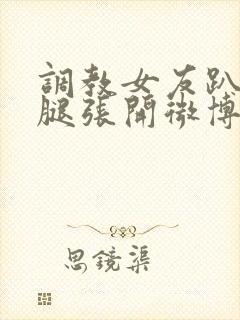 調教女友趴
腿張開微博
思鏡渠